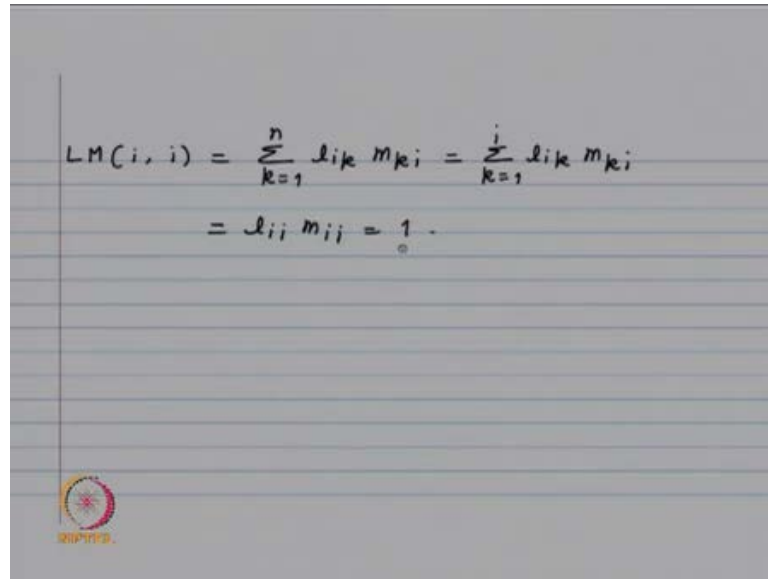 LM(i, i) = n Σ k=1 lik mki = i Σ k=1 lik mki
= lii mii = 1 .
NPTEL